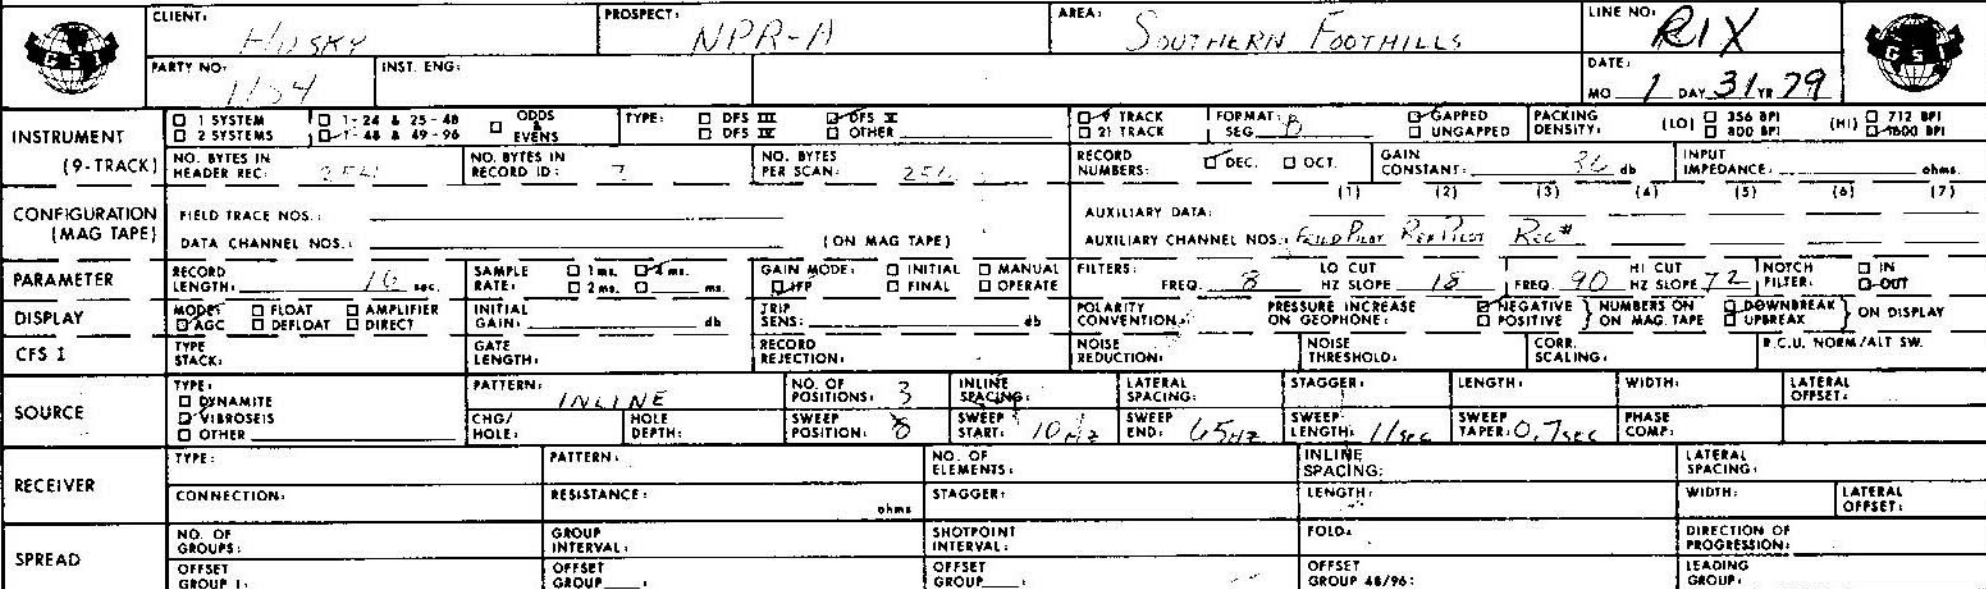 CLIENT: HUSKY PROSPECT: NPR-A AREA: SOUTHERN FOOTHILLS LINE NO: RIX
GSI GSI
PARTY NO: INST. ENG: DATE: MO 1 DAY 31 YR 79
INSTRUMENT (9-TRACK)
□ 1 SYSTEM □ 1-24 & 25-48 □ ODDS & EVENS TYPE: □ DFS III ☑ DFS V ☑ 9 TRACK FORMAT: SEG B ☑ GAPPED PACKING DENSITY: (LO) □ 356 BPI (HI) □ 712 BPI
□ 2 SYSTEMS ☑ 1-48 & 49-96 □ DFS IV □ OTHER □ 21 TRACK □ UNGAPPED □ 800 BPI ☑ 1600 BPI
NO. BYTES IN HEADER REC: NO. BYTES IN RECORD ID: 7 NO. BYTES PER SCAN: RECORD NUMBERS: ☑ DEC. □ OCT. GAIN CONSTANT: 36 db INPUT IMPEDANCE: ohms.
CONFIGURATION (MAG TAPE)
(1) (2) (3) (4) (5) (6) (7)
FIELD TRACE NOS.: AUXILIARY DATA:
DATA CHANNEL NOS.: (ON MAG TAPE) AUXILIARY CHANNEL NOS.: FIELD PILOT REF PILOT REC #
PARAMETER
RECORD LENGTH: 16 sec. SAMPLE RATE: □ 1 ms. ☑ 4 ms. □ 2 ms. □ ms. GAIN MODE: □ INITIAL □ MANUAL ☑ IFP □ FINAL □ OPERATE FILTERS: FREQ. 8 LO CUT HZ SLOPE 18 FREQ. 90 HI CUT HZ SLOPE 72 NOTCH FILTER: □ IN ☑ OUT
DISPLAY
MODE: □ FLOAT □ AMPLIFIER ☑ AGC □ DEFLOAT □ DIRECT INITIAL GAIN: db TRIP SENS: db POLARITY CONVENTION: PRESSURE INCREASE ON GEOPHONE: ☑ NEGATIVE □ POSITIVE } NUMBERS ON ON MAG. TAPE ☑ DOWNBREAK □ UPBREAK } ON DISPLAY
CFS I
TYPE STACK: GATE LENGTH: RECORD REJECTION: NOISE REDUCTION: NOISE THRESHOLD: CORR. SCALING: R.C.U. NORM/ALT SW.
SOURCE
TYPE: □ DYNAMITE ☑ VIBROSEIS □ OTHER
PATTERN: INLINE NO. OF POSITIONS: 3 INLINE SPACING: LATERAL SPACING: STAGGER: LENGTH: WIDTH: LATERAL OFFSET:
CHG/HOLE: HOLE DEPTH: SWEEP POSITION: 8 SWEEP START: 10 HZ SWEEP END: 65 HZ SWEEP LENGTH: 11 sec SWEEP TAPER: 0.7 sec PHASE COMP:
RECEIVER
TYPE: PATTERN: NO. OF ELEMENTS: INLINE SPACING: LATERAL SPACING:
CONNECTION: RESISTANCE: ohms STAGGER: LENGTH: WIDTH: LATERAL OFFSET:
SPREAD
NO. OF GROUPS: GROUP INTERVAL: SHOTPOINT INTERVAL: FOLD: DIRECTION OF PROGRESSION:
OFFSET GROUP 1: OFFSET GROUP : OFFSET GROUP : OFFSET GROUP 48/96: LEADING GROUP: